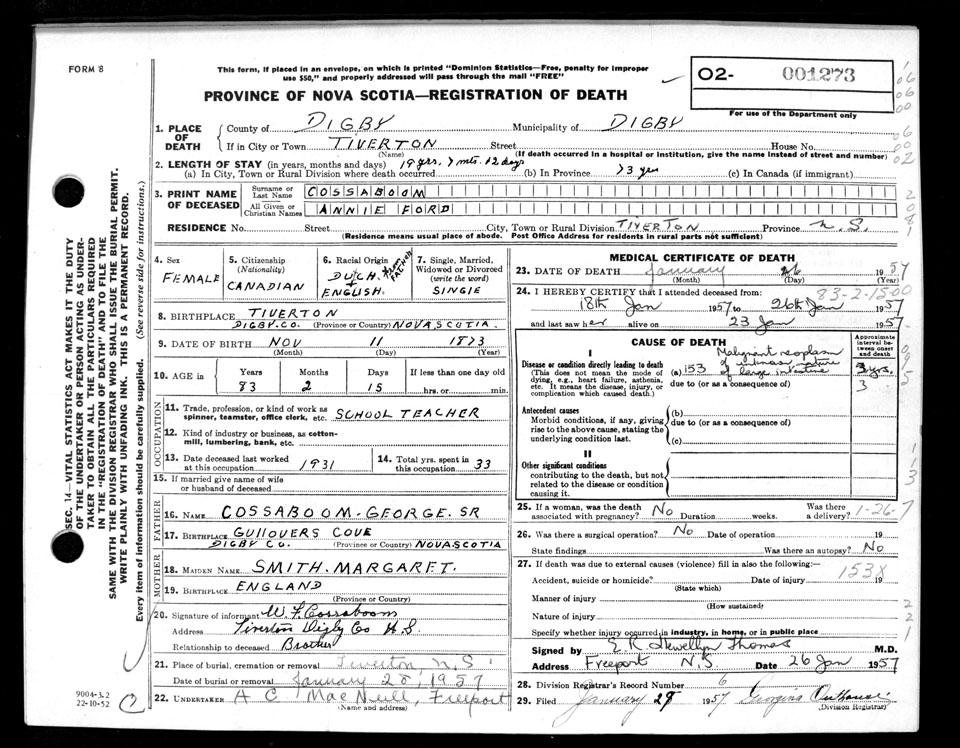 FORM 8
This form, if placed in an envelope, on which is printed "Dominion Statistics—Free, penalty for improper
use $50," and properly addressed will pass through the mail "FREE"
O2- 001273
For use of the Department only
PROVINCE OF NOVA SCOTIA—REGISTRATION OF DEATH
1. PLACE OF DEATH
County of DIGBY Municipality of DIGBY
If in City or Town TIVERTON Street House No.
(Name) (If death occurred in a hospital or institution, give the name instead of street and number)
2. LENGTH OF STAY (in years, months and days) 19 yrs. 7 mts. 12 days
(a) In City, Town or Rural Division where death occurred (b) In Province 73 yrs (c) In Canada (if immigrant)
3. PRINT NAME OF DECEASED
Surname or Last Name COSSABOOM
All Given or Christian Names ANNIE FORD
RESIDENCE No. Street City, Town or Rural Division TIVERTON Province N.S.
(Residence means usual place of abode. Post Office Address for residents in rural parts not sufficient)
4. Sex FEMALE
5. Citizenship (Nationality) CANADIAN
6. Racial Origin from FATHER DUTCH + ENGLISH
7. Single, Married, Widowed or Divorced (write the word) SINGLE
8. BIRTHPLACE TIVERTON
DIGBY.CO. (Province or Country) NOVA SCOTIA.
9. DATE OF BIRTH NOV 11 1873
(Month) (Day) (Year)
10. AGE in Years Months Days If less than one day old
83 2 15 hrs. or min.
OCCUPATION
11. Trade, profession, or kind of work as spinner, teamster, office clerk, etc. SCHOOL TEACHER
12. Kind of industry or business, as cotton-mill, lumbering, bank, etc.
13. Date deceased last worked at this occupation 1931
14. Total yrs. spent in this occupation 33
15. If married give name of wife or husband of deceased
FATHER
16. NAME COSSABOOM. GEORGE. SR
17. BIRTHPLACE GULLOVERS COVE
DIGBY CO. (Province or Country) NOVA SCOTIA
MOTHER
18. MAIDEN NAME SMITH. MARGARET.
19. BIRTHPLACE ENGLAND
(Province or Country)
20. Signature of informant W. F. Cossaboom
Address Tiverton Digby Co N S
Relationship to deceased Brother
21. Place of burial, cremation or removal Tiverton, N.S.
Date of burial or removal January 28, 1957
22. UNDERTAKER A C MacNeill, Freeport
(Name and address)
MEDICAL CERTIFICATE OF DEATH
23. DATE OF DEATH January 26 1957
(Month) (Day) (Year)
83-2-15 00
24. I HEREBY CERTIFY that I attended deceased from:
18th Jan 1957 to 26th Jan 1957
and last saw her alive on 23 Jan 1957.
CAUSE OF DEATH
Approximate interval between onset and death
I
Disease or condition directly leading to death
(This does not mean the mode of dying, e.g., heart failure, asthenia, etc. It means the disease, injury, or complication which caused death.)
(a) 153 Malignant neoplasm of large intestine 3 yrs.
3
due to (or as a consequence of)
Antecedent causes
Morbid conditions, if any, giving rise to the above cause, stating the underlying condition last.
(b)
due to (or as a consequence of)
(c)
II
Other significant conditions
contributing to the death, but not related to the disease or condition causing it.
25. If a woman, was the death associated with pregnancy? No Duration weeks. Was there a delivery?
1-26-7
26. Was there a surgical operation? No Date of operation 19
State findings Was there an autopsy? No
27. If death was due to external causes (violence) fill in also the following:—
1538
Accident, suicide or homicide? Date of injury 19
(State which)
Manner of injury
(How sustained)
Nature of injury
Specify whether injury occurred in industry, in home, or in public place
Signed by E R Llewellyn Thomas M.D.
Address Freeport N.S Date 26 Jan 1957
28. Division Registrar's Record Number 6
29. Filed January 28 1957 Georgina Outhouse
(Division Registrar)
SEC. 14—VITAL STATISTICS ACT MAKES IT THE DUTY
OF THE UNDERTAKER OR PERSON ACTING AS UNDER-
TAKER TO OBTAIN ALL THE PARTICULARS REQUIRED
IN THE "REGISTRATION OF DEATH" AND TO FILE THE
SAME WITH THE DIVISION REGISTRAR WHO SHALL ISSUE THE BURIAL PERMIT.
WRITE PLAINLY WITH UNFADING INK. THIS IS A PERMANENT RECORD.
Every item of information should be carefully supplied. (See reverse side for instructions.)
9004-3.2
22-10-52